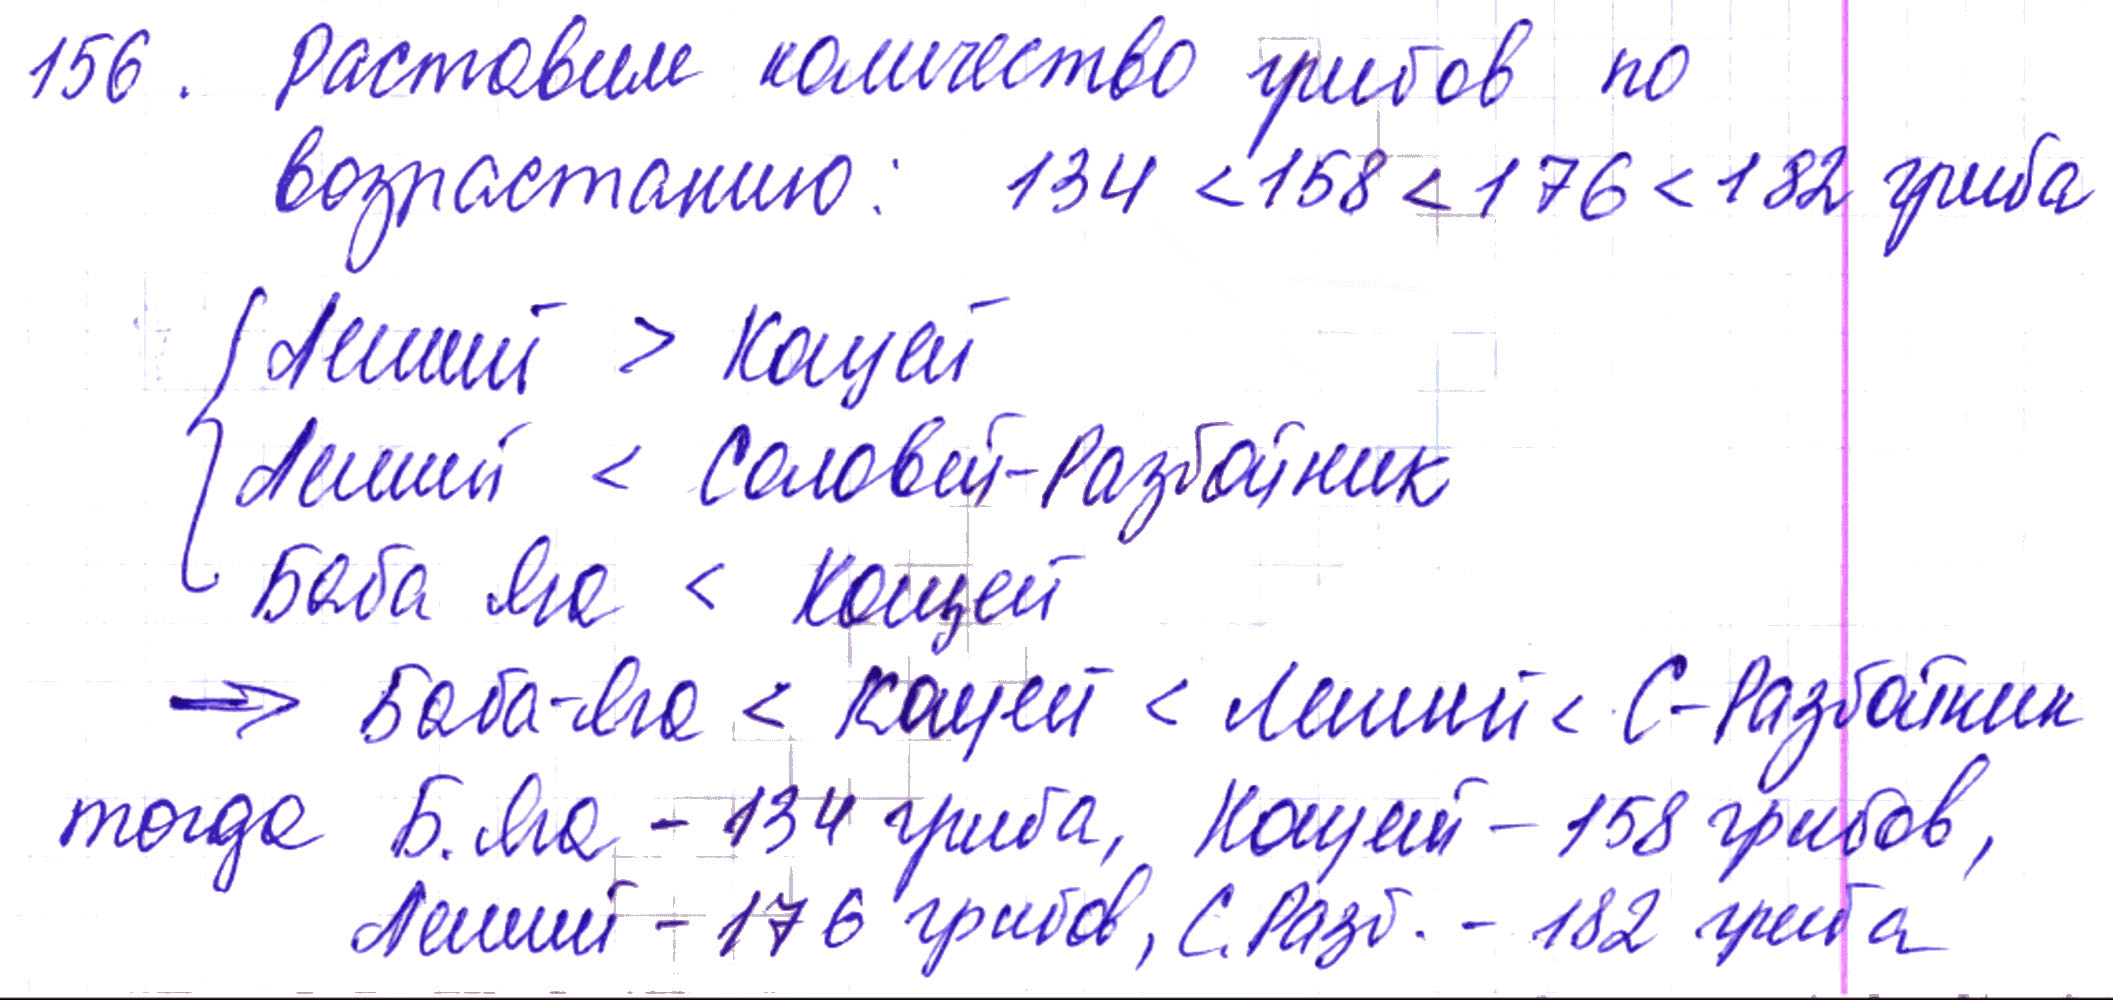 156. Растовим количество грибов по
возрастанию: 134 < 158 < 176 < 182 гриба
Леший > Кощей
Леший < Соловей-Разбойник
Баба Яга < Кощей
⇒ Баба-Яга < Кощей < Леший < С-Разбойник
тогда Б. Яга - 134 гриба, Кощей - 158 грибов,
Леший - 176 грибов, С. Разб. - 182 гриба